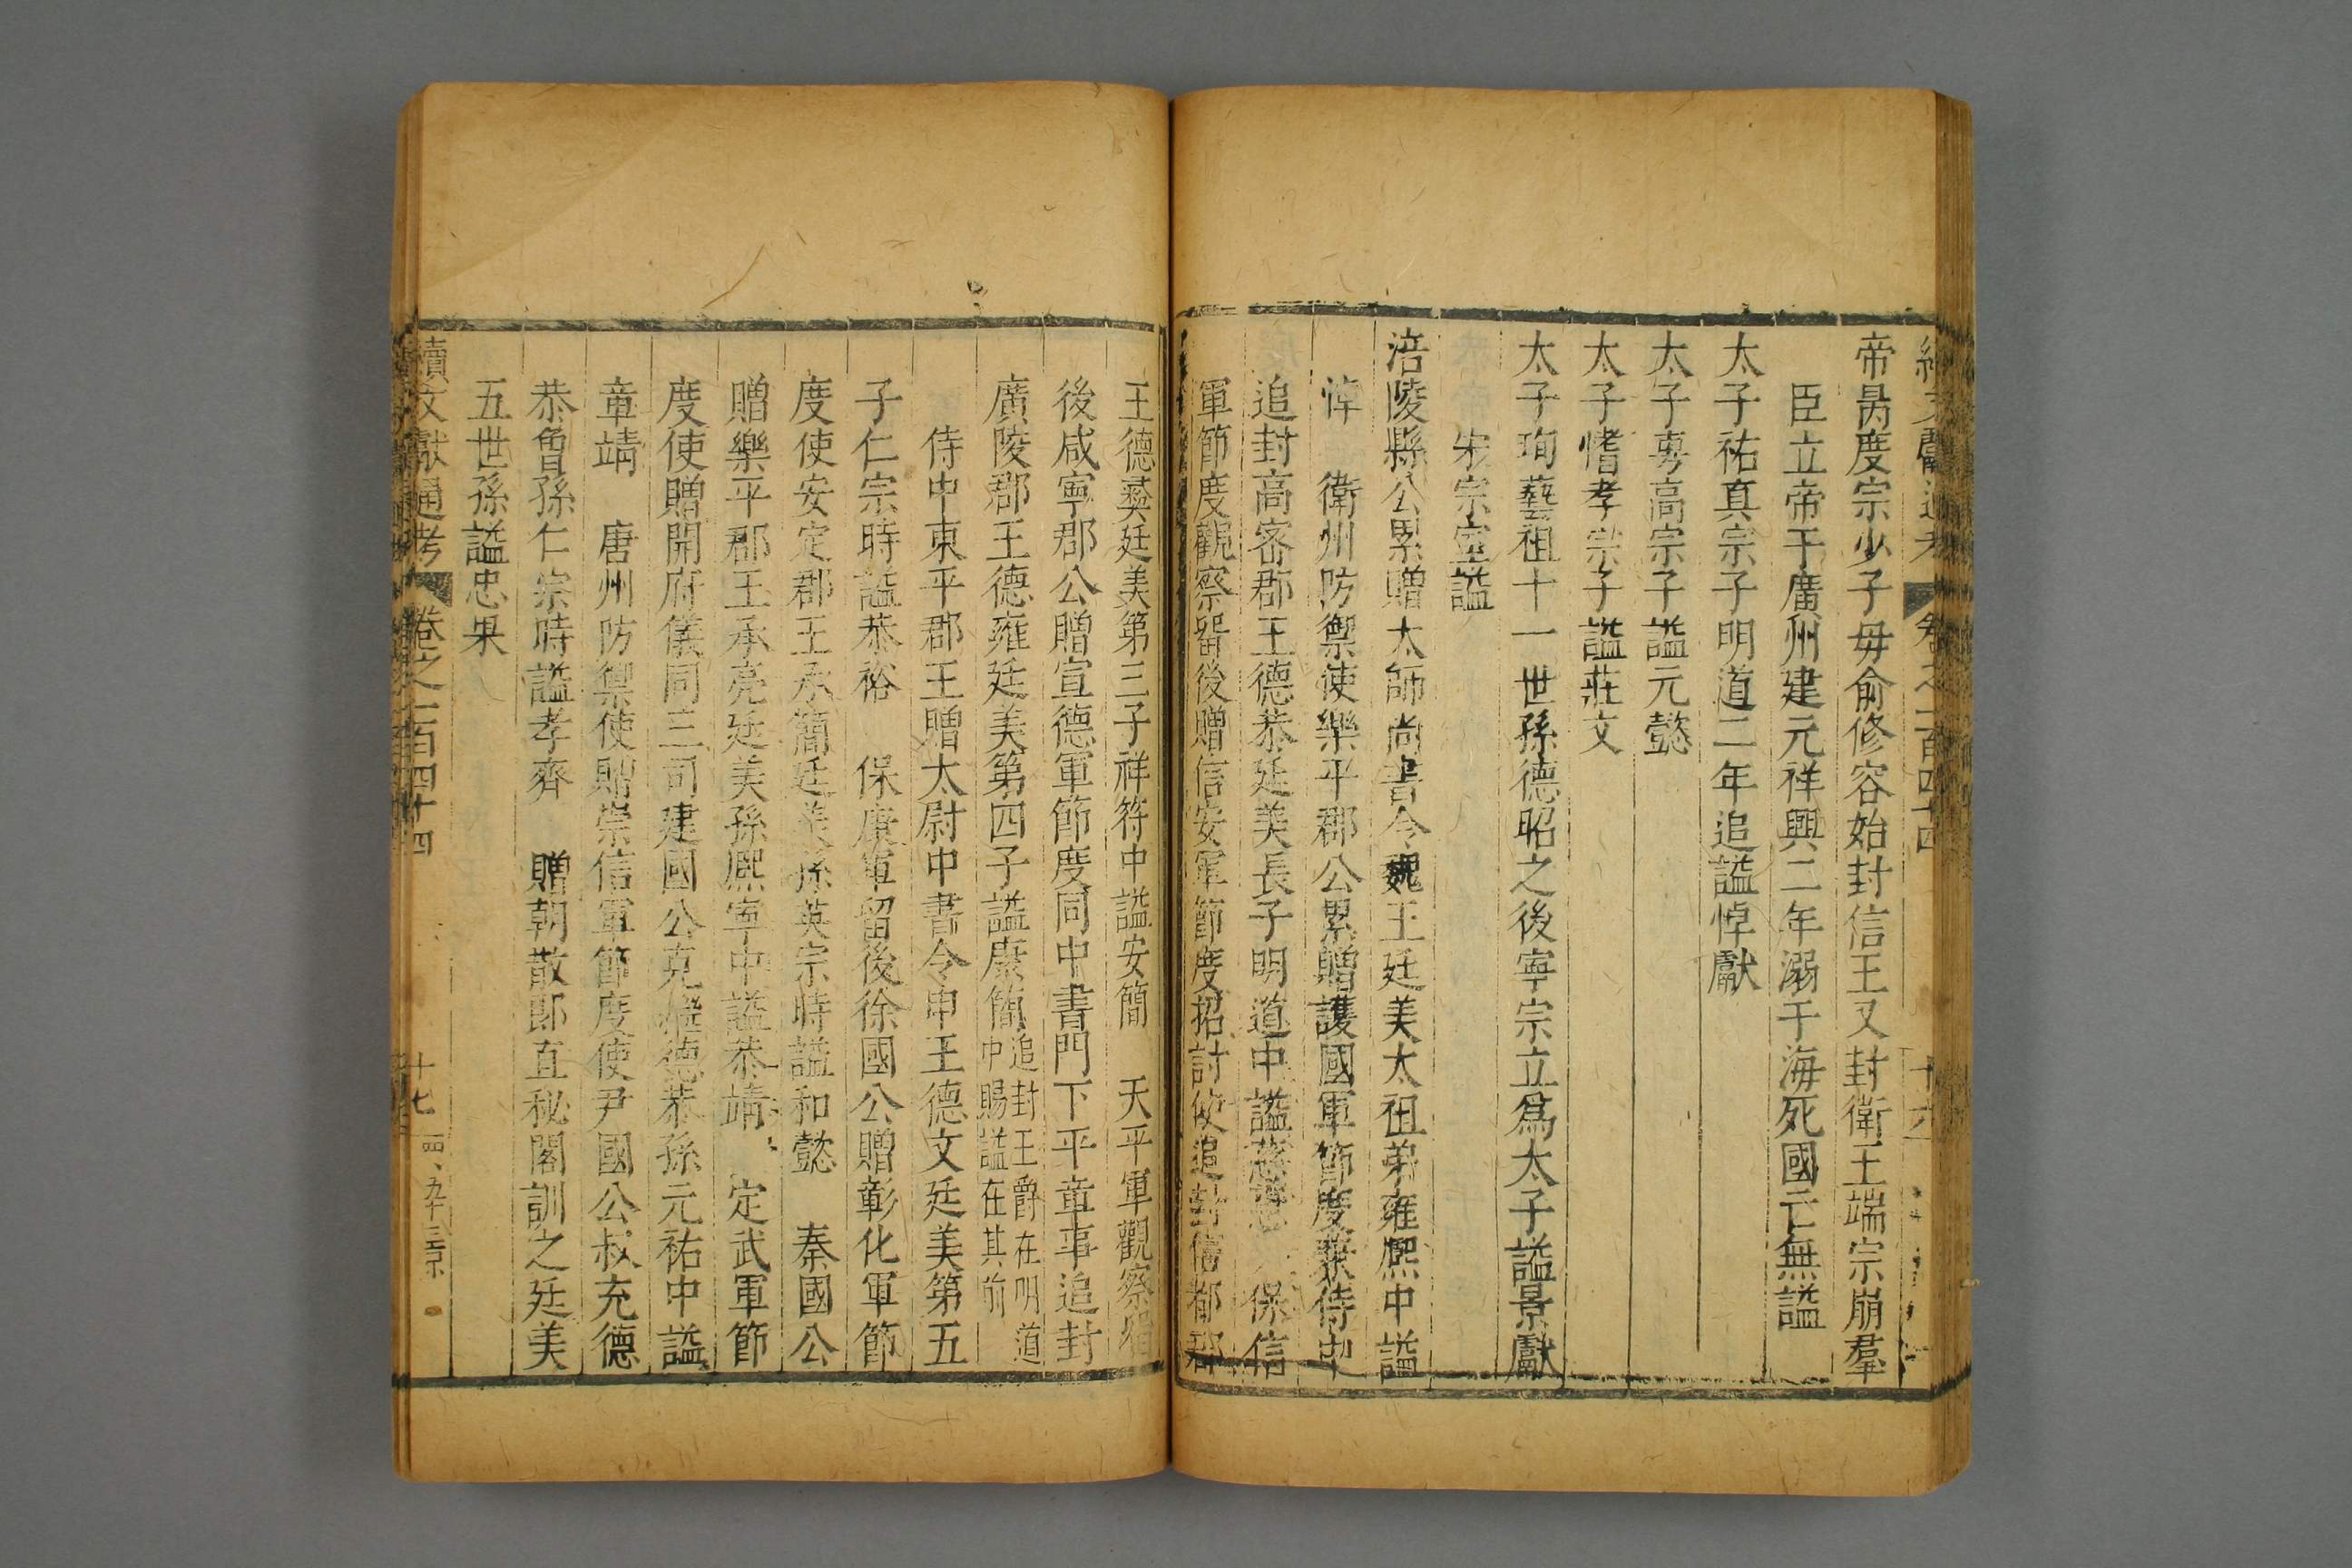 帝昺度宗少子母俞修容始封信王又封衛王端宗崩羣
臣立帝于廣州建元祥興二年溺于海死國亡無謚
太子祐真宗子明道二年追謚悼獻
太子旉高宗子謚元懿
太子愭孝宗子謚莊文
太子珣藝祖十一世孫德昭之後寧宗立爲太子謚景獻
宋宗室謚
涪陵縣公累贈太師尚書令魏王廷美太祖弟雍熙中謚
悼 衛州防禦使樂平郡公累贈護國軍節度兼侍中
追封高密郡王德恭廷美長子明道中謚慈惠 保信
軍節度觀察留後贈信安軍節度招討使追封信都郡
王德彞廷美第三子祥符中謚安簡 天平軍觀察留
後咸寧郡公贈宣德軍節度同中書門下平章事追封
廣陵郡王德雍廷美第四子謚康簡追封王爵在明道中賜謚在其前
侍中東平郡王贈太尉中書令申王德文廷美第五
子仁宗時謚恭裕 保康軍留後徐國公贈彰化軍節
度使安定郡王承簡廷美孫英宗時謚和懿 秦國公
贈樂平郡王承亮廷美孫熙寧中謚恭靖 定武軍節
度使贈開府儀同三司建國公克繼德恭孫元祐中謚
章靖 唐州防禦使贈崇信軍節度使尹國公叔充德
恭曾孫仁宗時謚孝齊 贈朝散郎直秘閣訓之廷美
五世孫謚忠果
續文獻通考 卷之一百四十四 十七